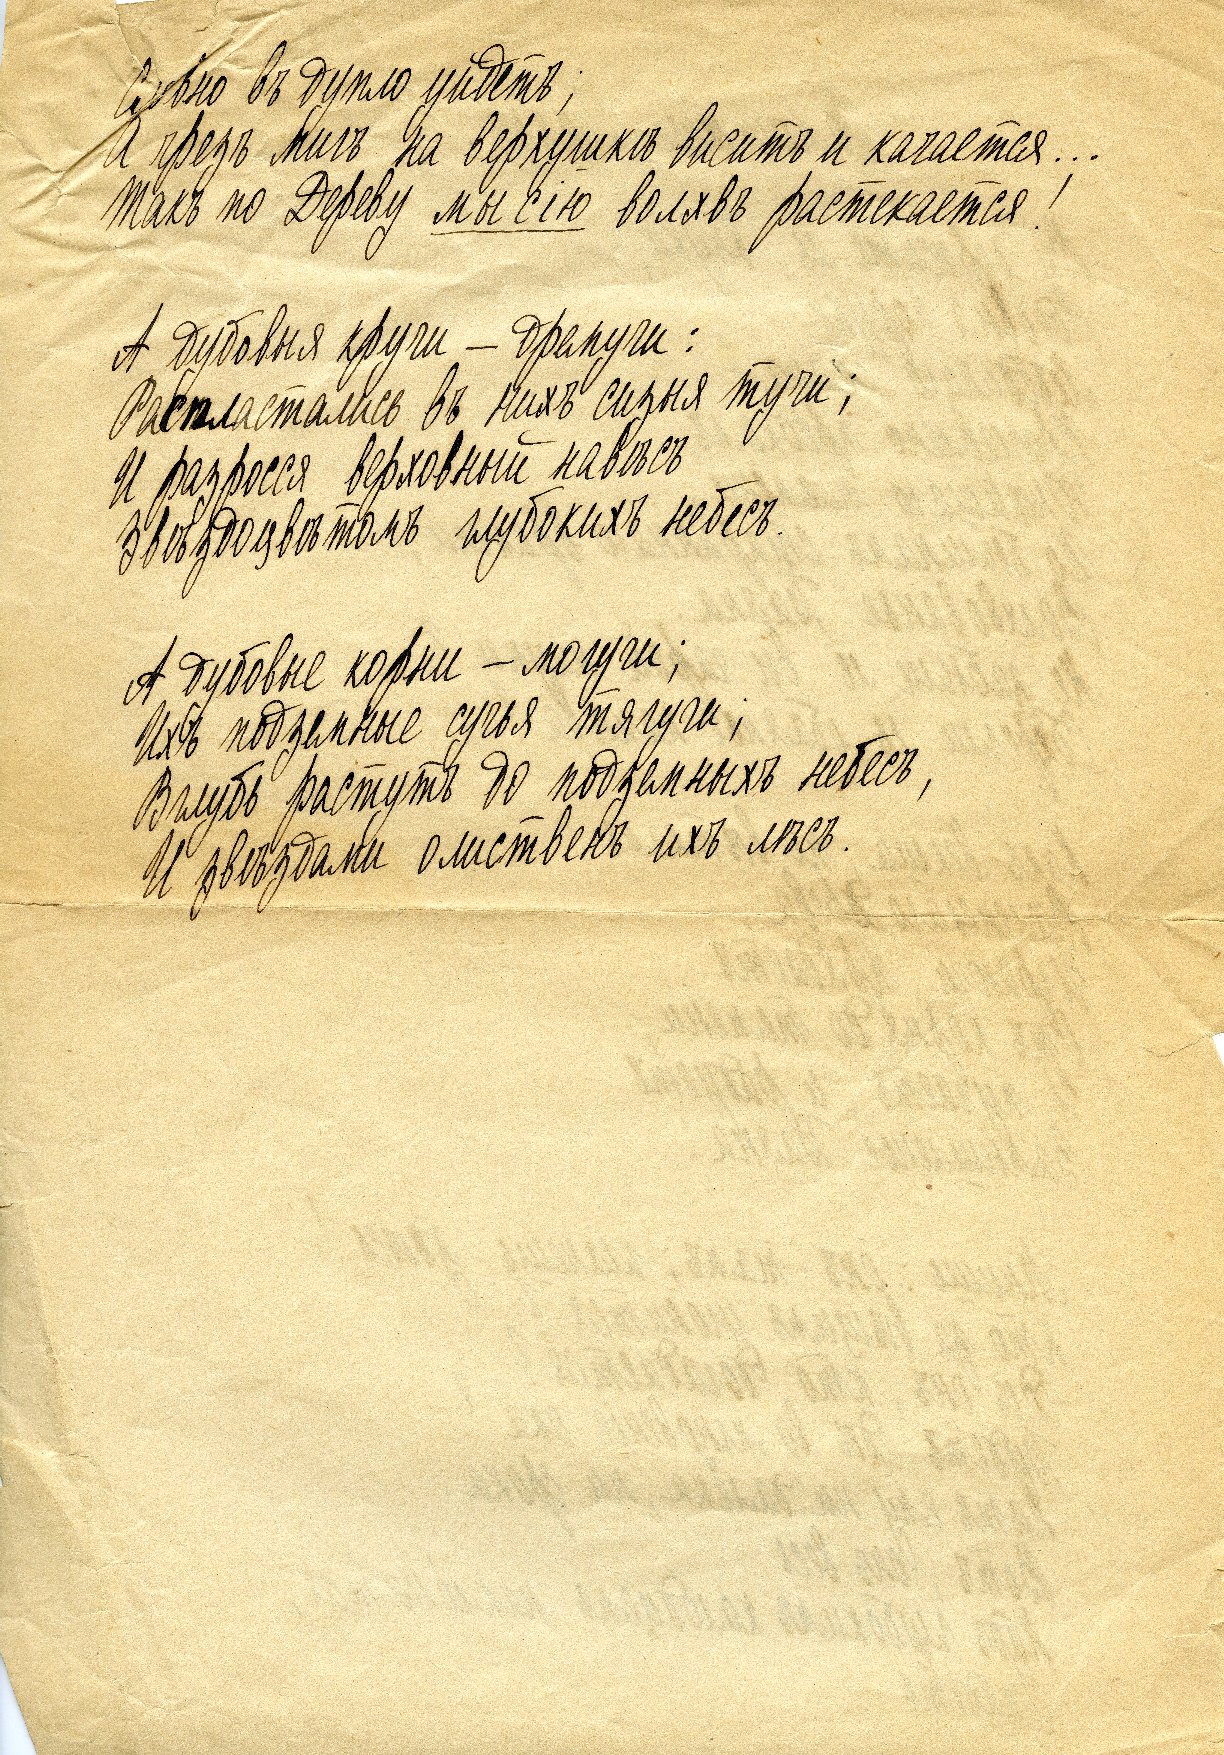 Словно въ дупло уйдетъ;
И чрезъ мигъ на верхушкѣ виситъ и качается...
Такъ по Дереву мысію волхвъ растекается!
А дубовыя кручи – дремучи:
Распластались въ нихъ сизыя тучи;
И разросся верховный навѣсъ
Звѣздоцвѣтомъ глубокихъ небесъ.
А дубовые корни – могучи;
Ихъ подземные сучья тягучи;
Вглубь растутъ до подземныхъ небесъ,
И звѣздами олиственъ ихъ лѣсъ.